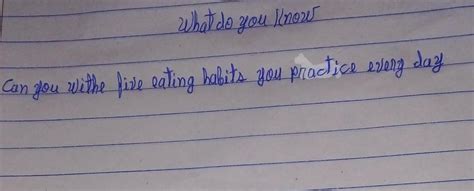 What do you know
Can you withe five eating habits you practice every day